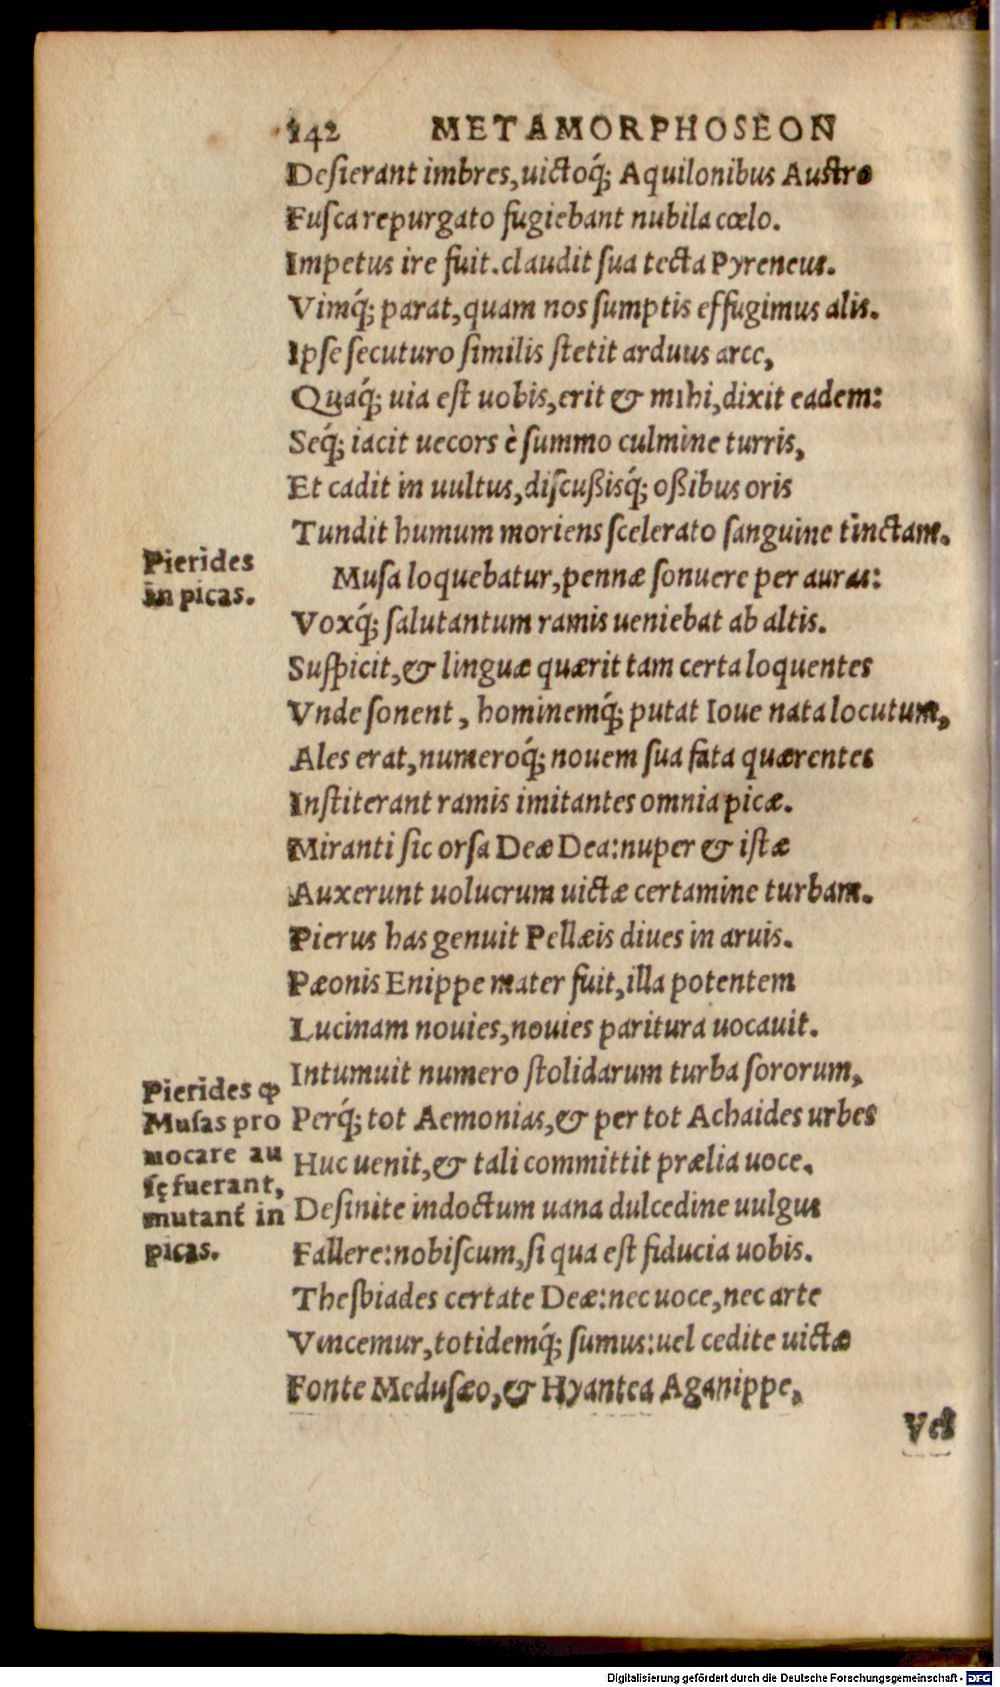 142 METAMORPHOSEON
Desierant imbres, uictoq́; Aquilonibus Austro
Fusca repurgato fugiebant nubila cœlo.
Impetus ire fuit. claudit sua tecta Pyreneus.
Vimq́; parat, quam nos sumptis effugimus alis.
Ipse secuturo similis stetit arduus arce,
Quaq́; uia est uobis, erit & mihi, dixit eadem:
Seq́; iacit uecors è summo culmine turris,
Et cadit in uultus, discußisq́; oßibus oris
Tundit humum moriens scelerato sanguine tinctam.
Pierides
in picas.
Musa loquebatur, pennæ sonuere per auras:
Voxq́; salutantum ramis ueniebat ab altis.
Suspicit, & linguæ quærit tam certa loquentes
Vnde sonent, hominemq́; putat Ioue nata locutum,
Ales erat, numeroq́; nouem sua fata quærentes
Institerant ramis imitantes omnia picæ.
Miranti sic orsa Deæ Dea: nuper & istæ
Auxerunt uolucrum uictæ certamine turbam.
Pierus has genuit Pellæis diues in aruis.
Pæonis Enippe mater fuit, illa potentem
Lucinam nouies, nouies paritura uocauit.
Intumuit numero stolidarum turba sororum,
Perq́; tot Aemonias, & per tot Achaides urbes
Huc uenit, & tali committit prælia uoce.
Desinite indoctum uana dulcedine uulgus
Fallere: nobiscum, si qua est fiducia uobis.
Thespiades certate Deæ: nec uoce, nec arte
Vincemur, totidemq́; sumus: uel cedite uictæ
Fonte Medusæo, & Hyantea Aganippe,
Pierides ꝙ
Musas pro
uocare au
sę fuerant,
mutant́ in
picas.
Vel
Digitalisierung gefördert durch die Deutsche Forschungsgemeinschaft - DFG